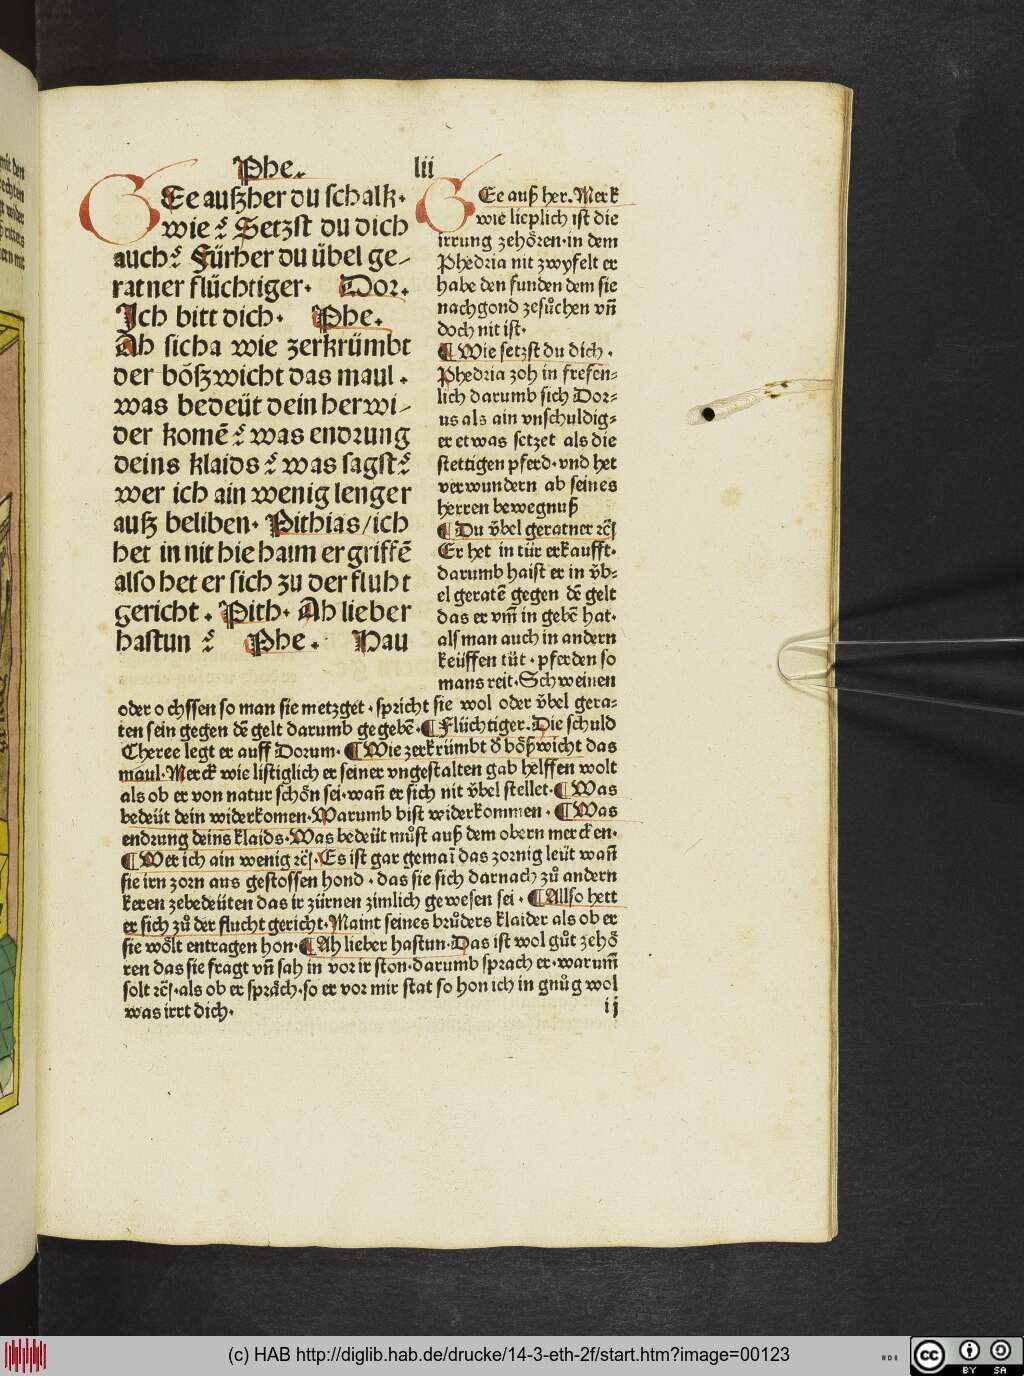 Phe. lii
GEe außher du schalk.
wie? Setzst du dich
auch? Fürher du übel ge-
ratner flüchtiger. Dor.
Ich bitt dich. Phe.
Ah sicha wie zerkrümbt
der bößwicht das maul.
was bedeüt dein herwi-
der komē? was endrung
deins klaids? was sagst?
wer ich ain wenig lenger
auß beliben. Pithias/ich
het in nit hie haim ergriffē
also het er sich zu der fluht
gericht. Pith. Ah lieber
hastun? Phe. Hau
GEe auß her. Merk
wie lieplich ist die
irrung zehören.in dem
Phedria nit zwyfelt er
habe den funden dem sie
nachgond zesůchen vñ
doch nit ist.
¶ Wie setzst du dich.
Phedria zoh in frefen-
lich darumb sich Dor-
us als ain vnschuldig-
er etwas setzet als die
stettigen pferd.vnd het
verwundern ab seines
herren bewegnuß
¶ Du v̈bel geratner rc̄
Er het in tür erkaufft.
darumb haist er in v̈b-
el geratē gegen dē gelt
das er vm̄ in gebē hat.
als man auch in andern
keüffen tüt. pferden so
mans reit. Schweinen
oder ochssen so man sie metzget. spricht sie wol oder v̈bel gera-
ten sein gegen dē gelt darumb gegebē. ¶ Flüchtiger. Die schuld
Cheree legt er auff Dorum. ¶ Wie zerkrümbt d̄ bößwicht das
maul. Merck wie listiglich er seiner vngestalten gab helffen wolt
als ob er von natur schön sei. wañ er sich nit v̈bel stellet. ¶ Was
bedeüt dein widerkomen. Warumb bist widerkommen. ¶ Was
endrung deins klaids. Was bedeüt můst auß dem obern mercken.
¶ Wer ich ain wenig rc̄. Es ist gar gemaī das zornig leüt wañ
sie irn zorn aus gestossen hond. das sie sich darnach zů andern
keren zebedeüten das ir zürnen zimlich gewesen sei. ¶ Allso hett
er sich zů der flucht gericht. Maint seines brůders klaider als ob er
sie wölt entragen hon. ¶ Ah lieber hastun. Das ist wol gůt zehö
ren das sie fragt vñ sah in vor ir ston. darumb sprach er. warum̄
solt rc̄. als ob er spräch. so er vor mir stat so hon ich in gnůg wol
was irrt dich. ij
(c) HAB http://diglib.hab.de/drucke/14-3-eth-2f/start.htm?image=00123
HAB
cc BY SA